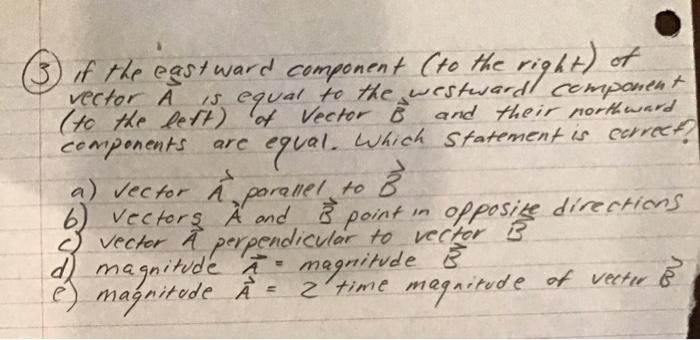 ③ if the eastward component (to the right) of
vector A⃗ is equal to the westward component
(to the left) of Vector B⃗ and their northward
components are equal. Which Statement is correct?
a) vector A⃗ parallel to B⃗
b) vectors A⃗ and B⃗ point in opposite directions
c) vector A⃗ perpendicular to vector B⃗
d) magnitude A⃗ = magnitude B⃗
e) magnitude A⃗ = 2 time magnitude of vector B⃗